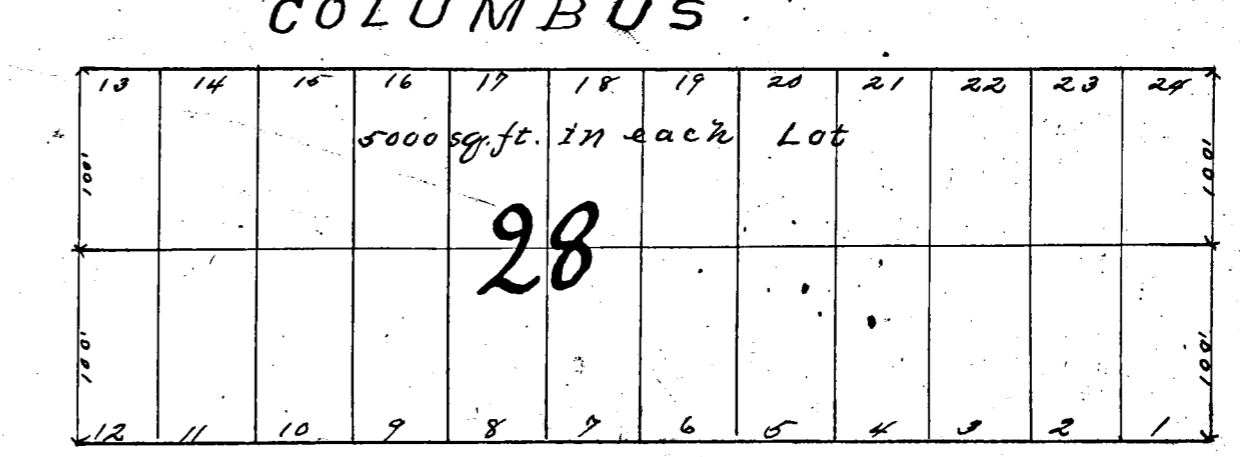 COLUMBUS
13 14 15 16 17 18 19 20 21 22 23 24
5000 sq. ft. in each Lot
100' 100'
28
100' 100'
12 11 10 9 8 7 6 5 4 3 2 1